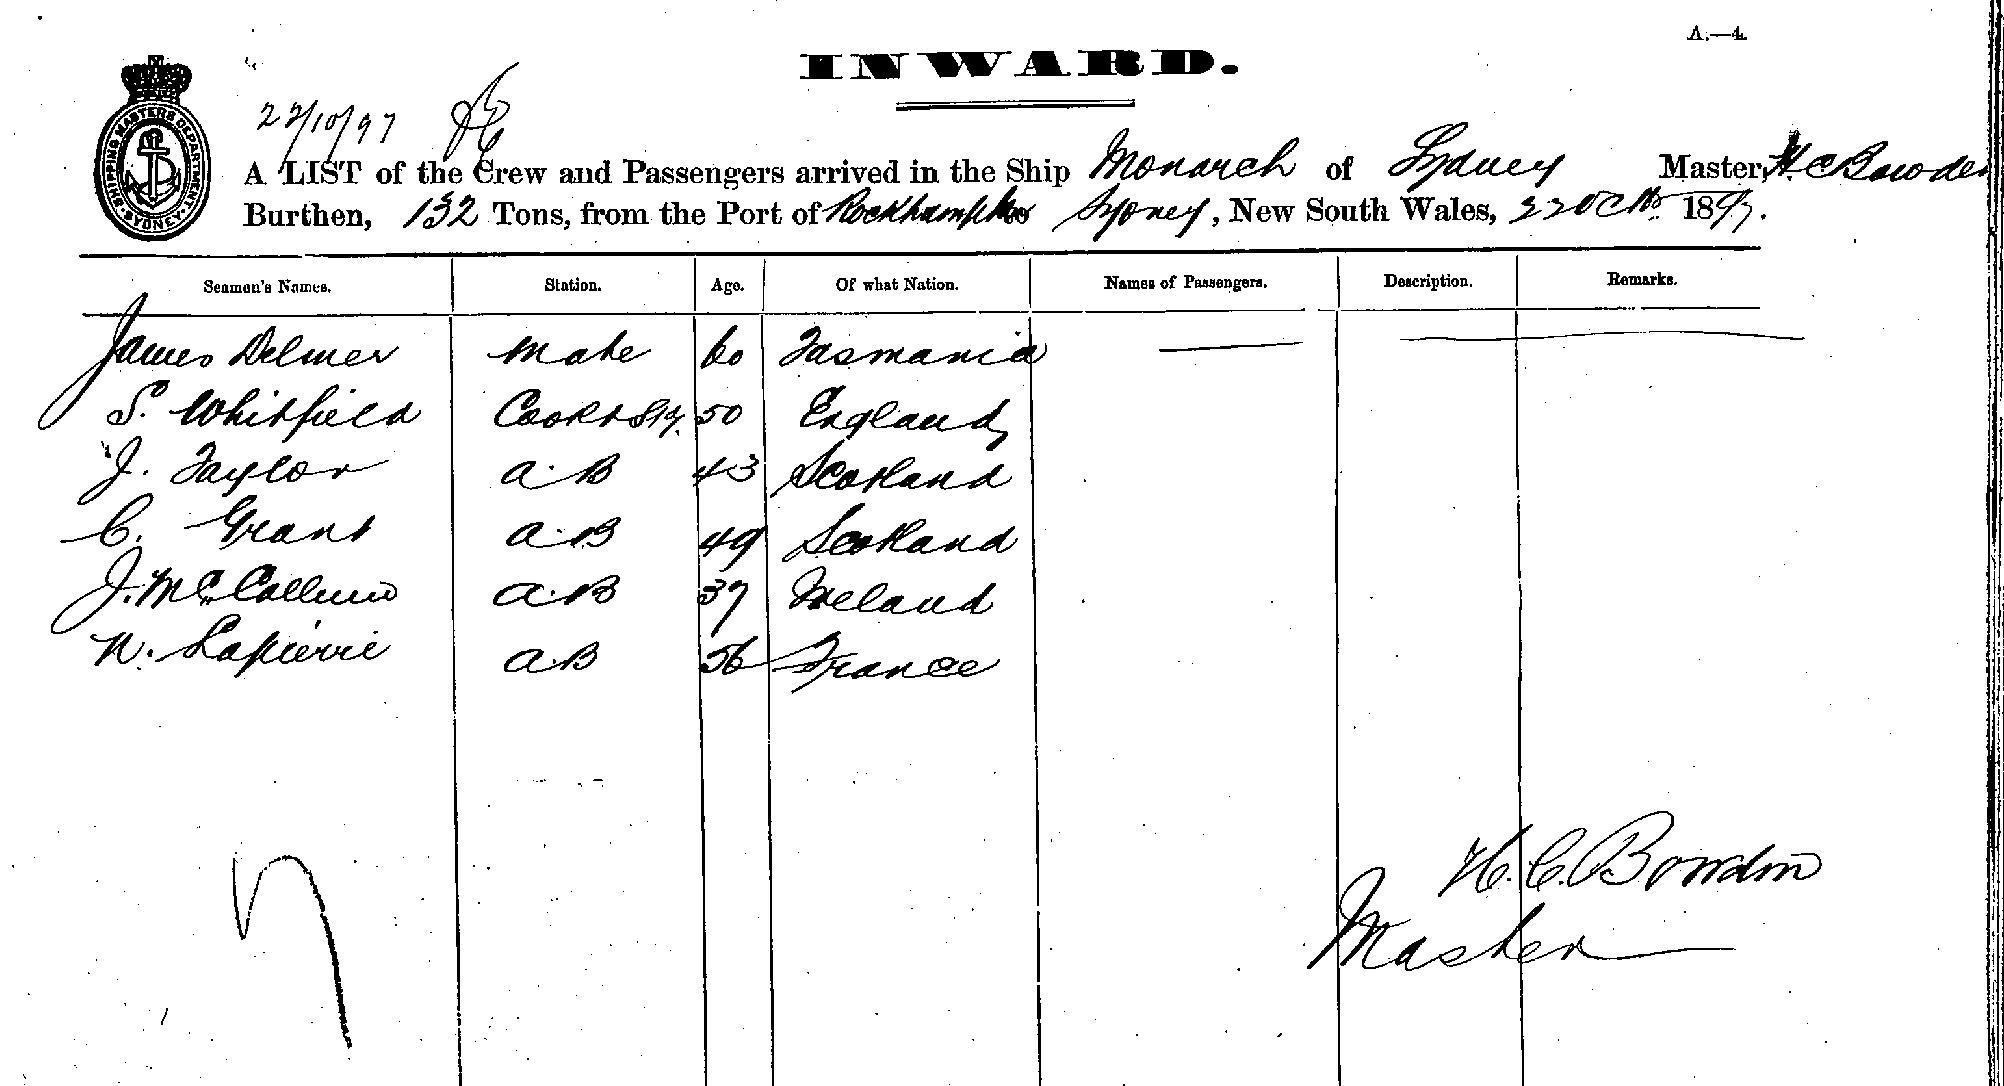 A.—4.
INWARD.
SHIPPING MASTERS DEPARTMENT SYDNEY
22/10/97
A LIST of the Crew and Passengers arrived in the Ship Monarch of Sydney Master, H C Bowden
Burthen, 132 Tons, from the Port of Rockhampton Sydney, New South Wales, 22 Octbr 1897.
Seamen's Names. Station. Age. Of what Nation. Names of Passengers. Description. Remarks.
James Delmer Mate 60 Tasmania
S. Whitfield Cook & Std. 50 England
J. Taylor A.B 43 Scotland
C. Grant A.B 49 Scotland
J. McCallum A.B 37 Ireland
N. Lapierre AB 56 France
H. C. Bowden
Master
7